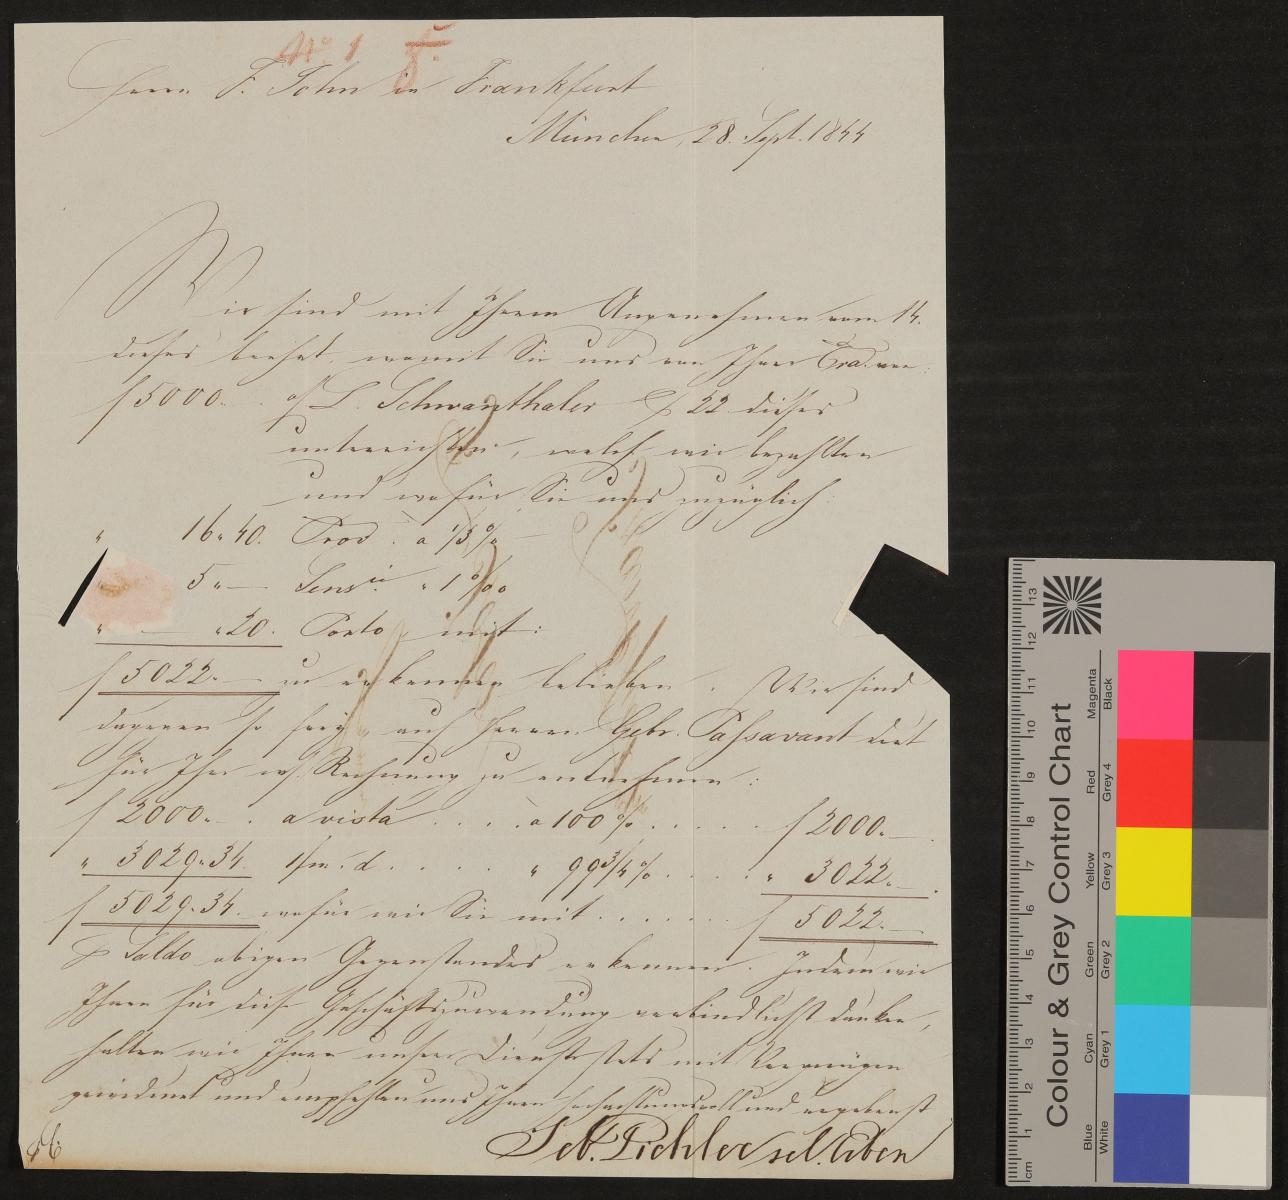 No 1
Herrn F. John in Frankfurt
München, 28. Sept. 1844
Wir sind mit Ihrem Angenehmen vom 14.
dieses beehrt, womit Sie uns von Ihrer Tra. von:
f 5000. a/ L. Schwanthaler p 22 dieses
unterrichten, welche wir bezahlten
und wofür Sie uns zuzüglich:
" 16. 40. Prov. à 1/3 %
" 5 " — Sens.ie " 1 ‰
" — " 20. Porto mit:
f 5022. — zu erkennen belieben. Wir sind
dagegen so frei, auf Herren Gebr. Passavant dort
für Ihre w/ Rechnung zu entnehmen:
f 2000. — . a vista . . . . à 100 % . . . . . f 2000. —
" 3029. 34. 1/m. d. . . . . " 99 3/4 % . . . . . " 3022. — .
f 5029. 34. wofür wir Sie mit . . . . . . f 5022. —
p Saldo obigen Gegenstandes erkennen. Indem wir
Ihnen für diese Geschäftszuwendung verbindlichst danken,
halten wir Ihnen unsere Dienste stets mit Vergnügen
gewidmet und empfehlen uns Ihnen hochachtungsvoll und ergebenst
Seb. Pichler sel. Erben